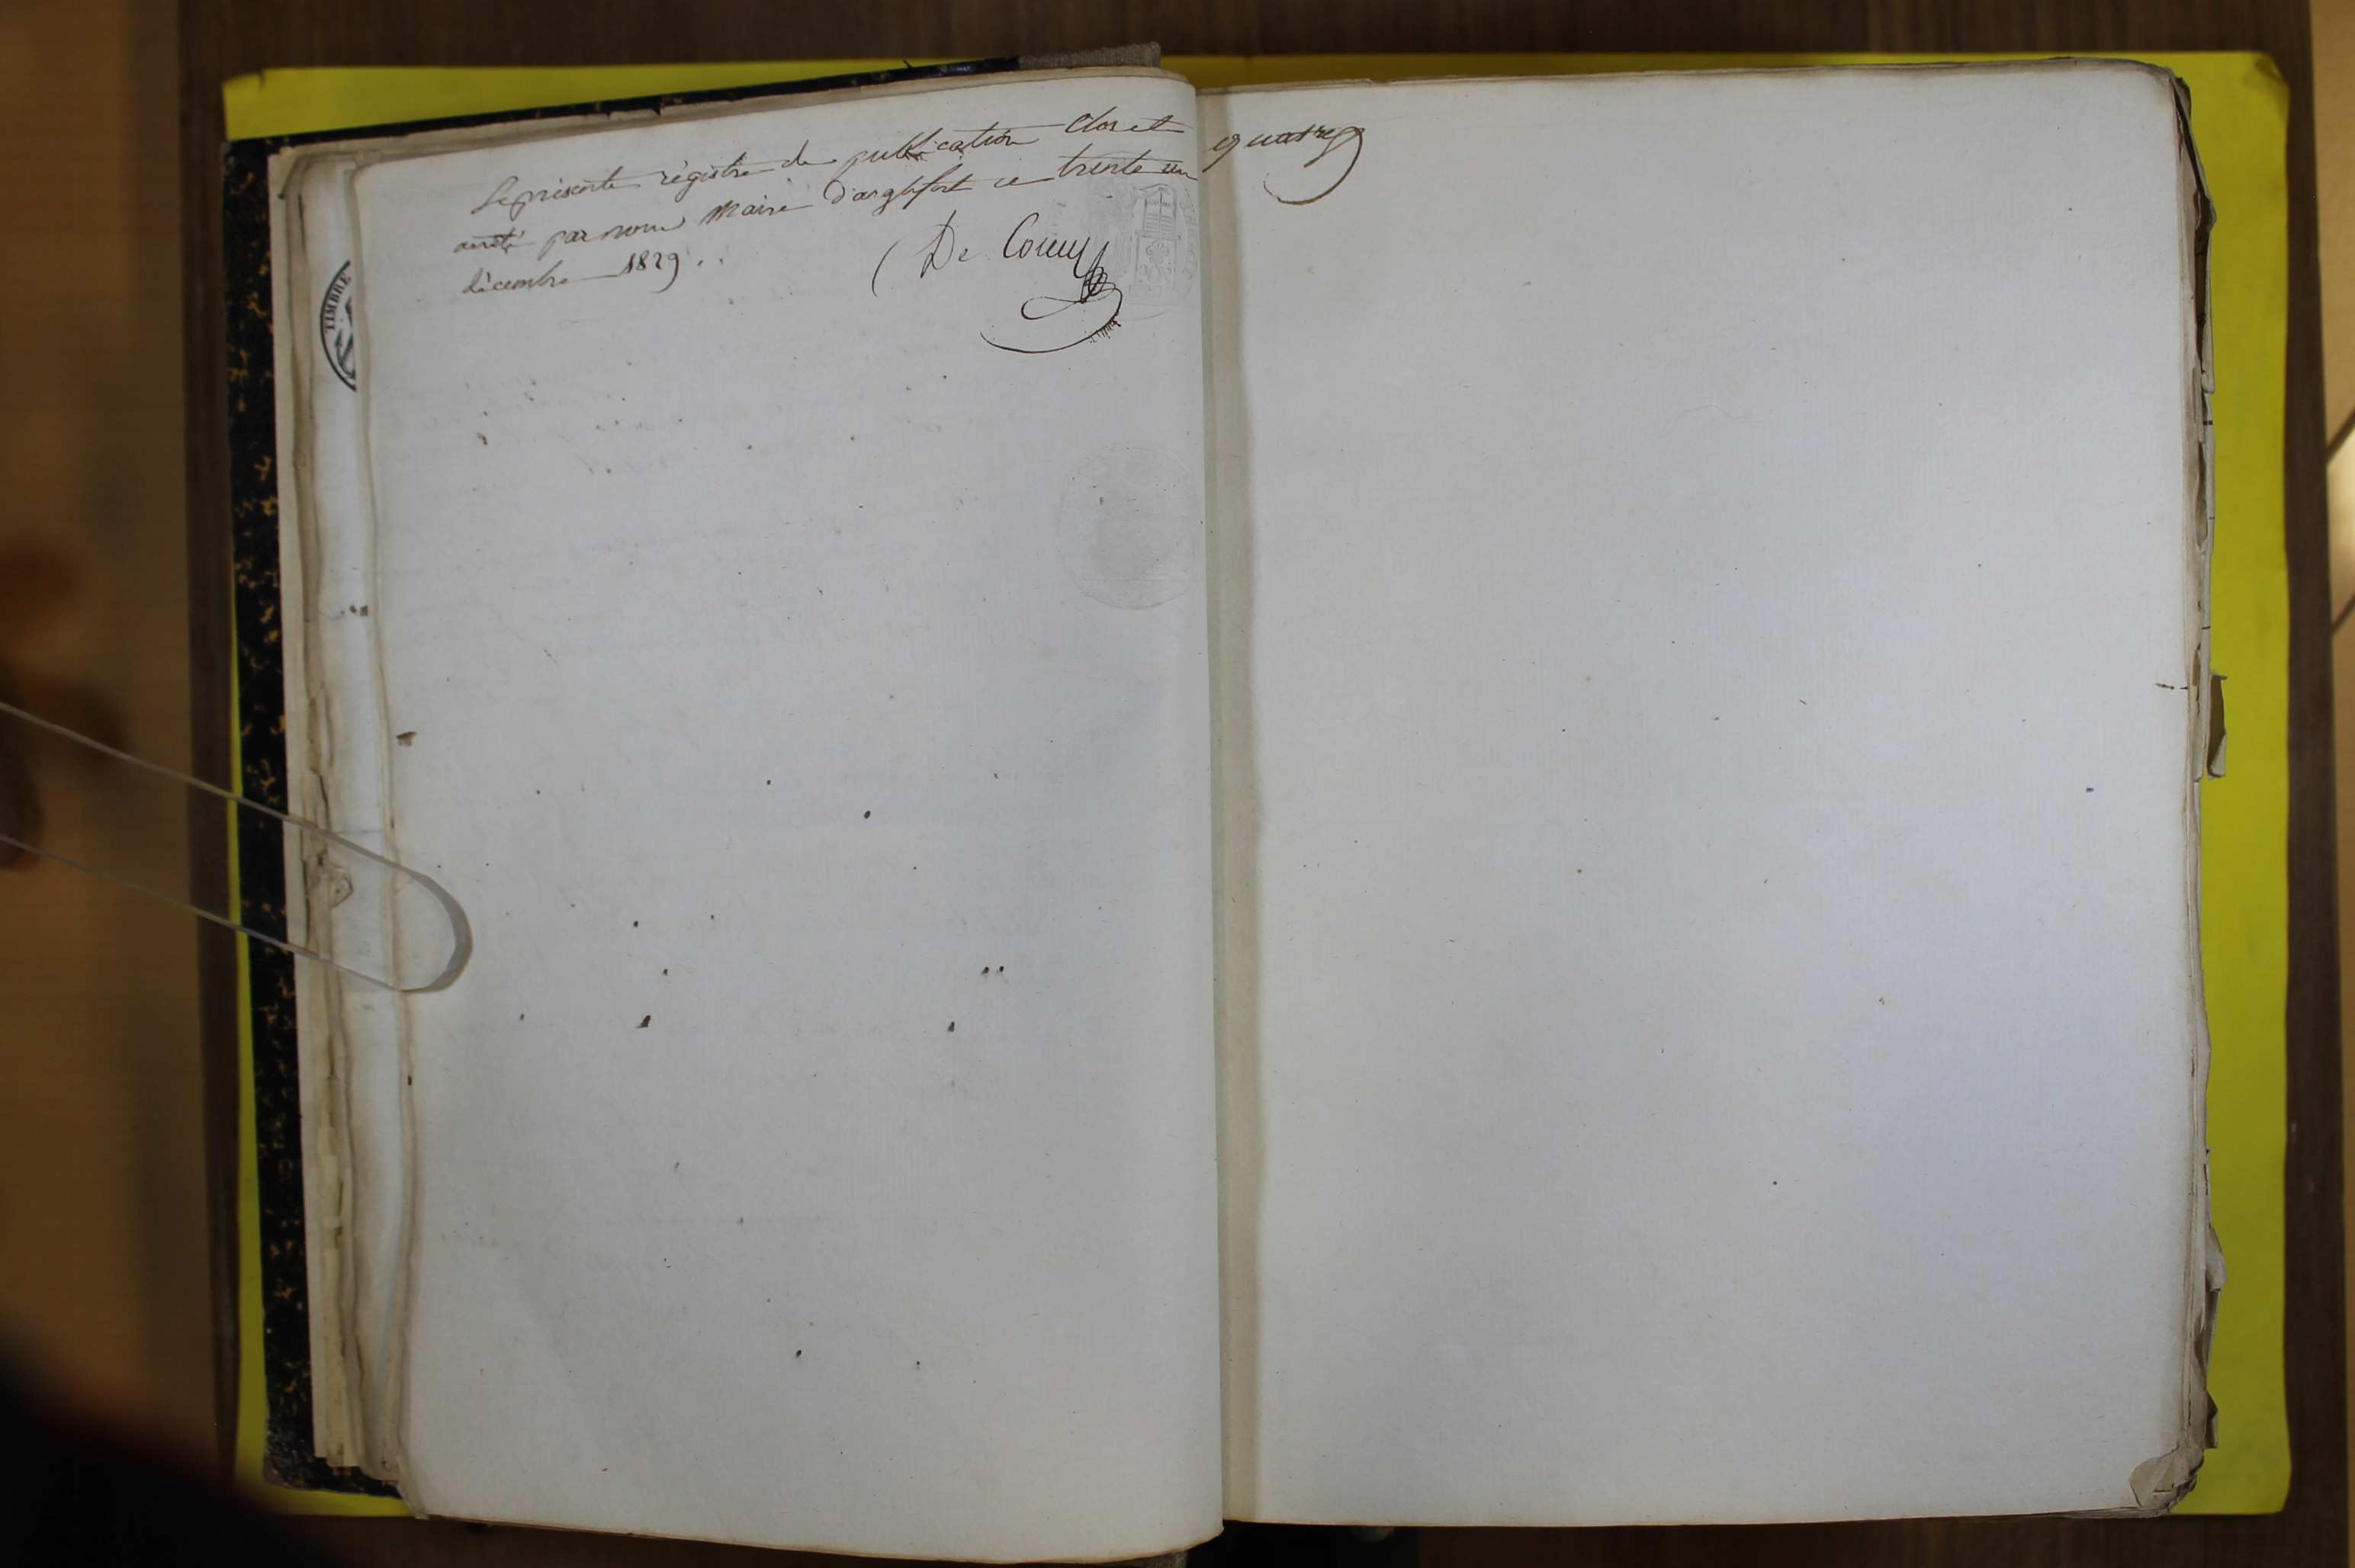 Le présente régistre de publication clos et
arrêté par nous maire d'anglefort ce trente un
décembre 1829 . .
De Cornu
quatre
TIMBRE